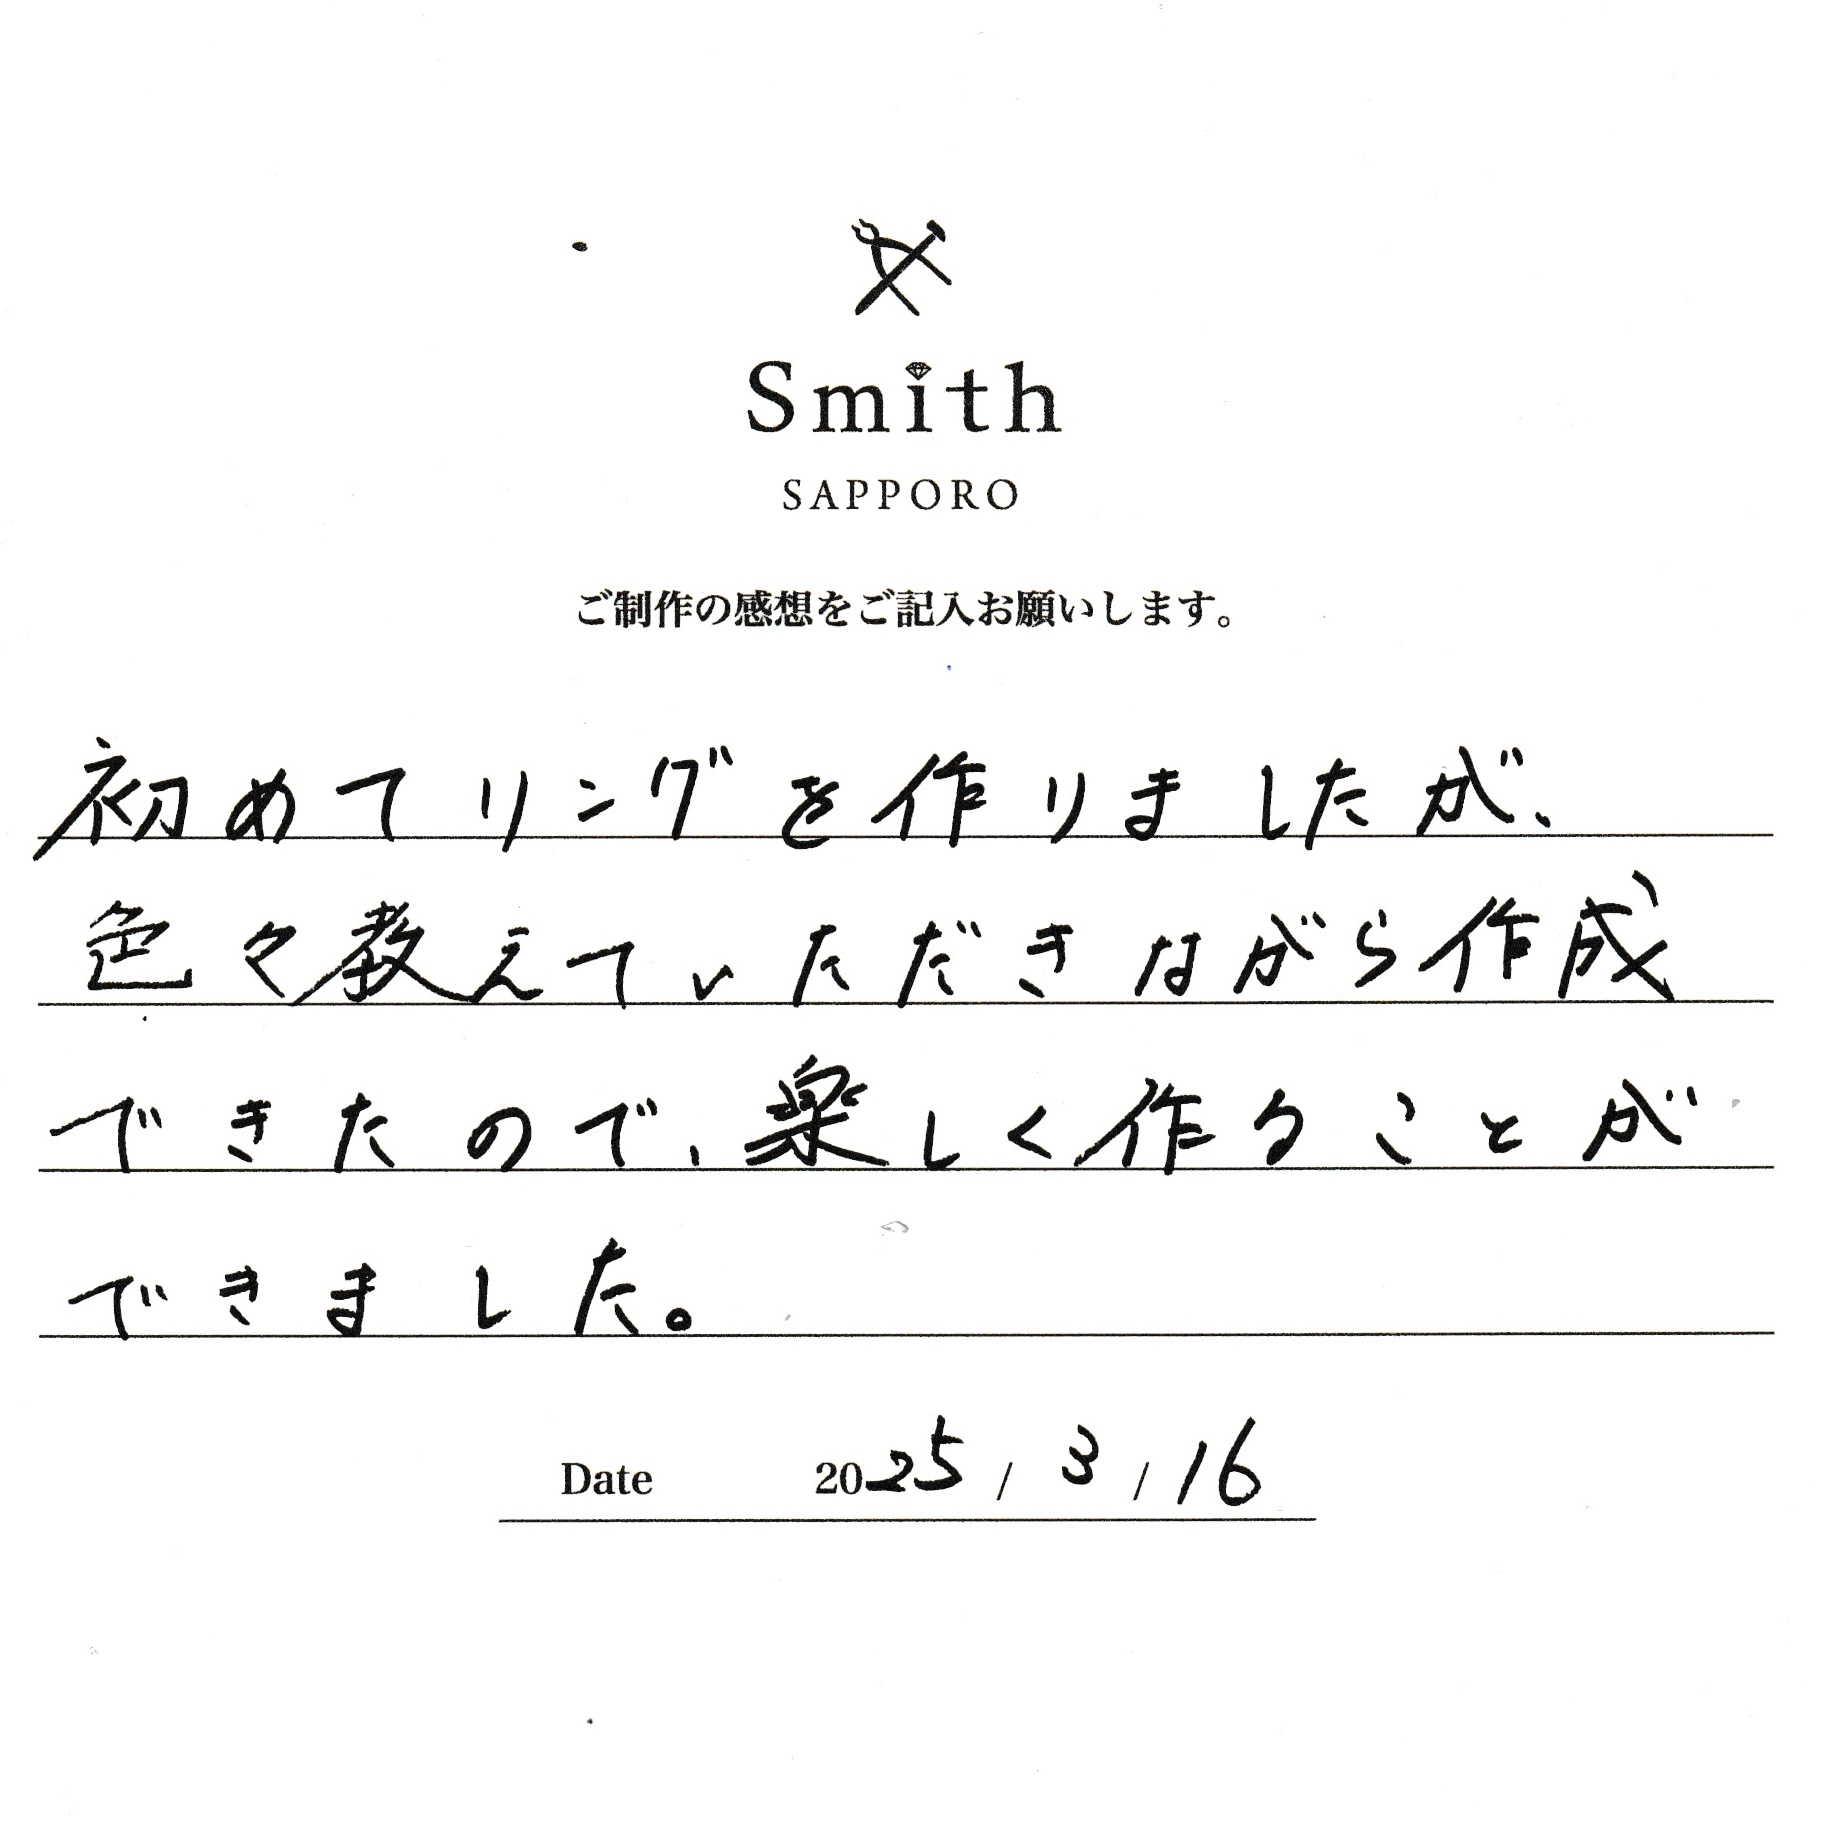 Smith
SAPPORO
ご制作の感想をご記入お願いします。
初めてリングを作りましたが、
色々教えていただきながら作成
できたので、楽しく作ることが
できました。
Date 2025 / 3 / 16